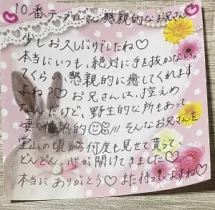 10番テーブルさん 懇親的なお兄さん
少しお久しぶりでしたね♡
本当にいつも、絶対に手を抜かない、
懇親的に癒してくれます
よね? お兄さんは、控えめ
なんだけど、野生的な所もあって
そんなお兄さんを
の頃から何度も見せて貰って
どんどん、心が開けてきました♡
本当にありがとう♡ また待ってますね♡